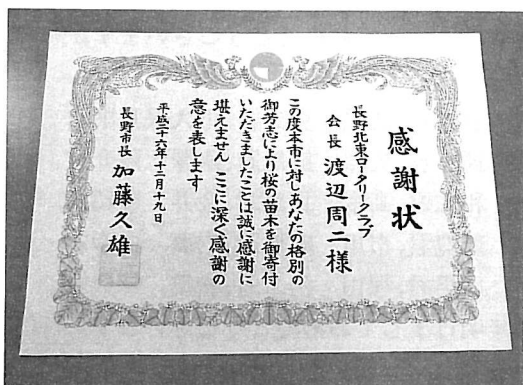 感謝状
長野北東ロータリークラブ
会長 渡辺周二様
この度本市に対しあなたの格別の
御芳志により桜の苗木を御寄付
いただきましたことは誠に感謝に
堪えません ここに深く感謝の
意を表します
平成二十六年十二月十九日
長野市長 加藤久雄